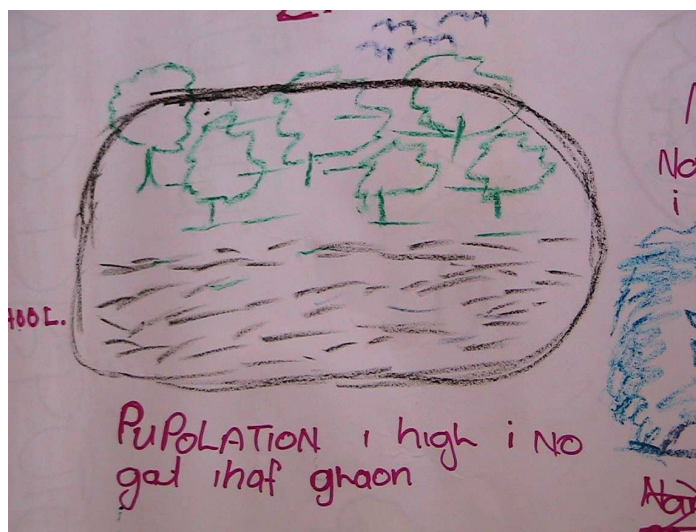 HOOL.
PUPOLATION i high i NO
gat inaf graon
No
i
Nai